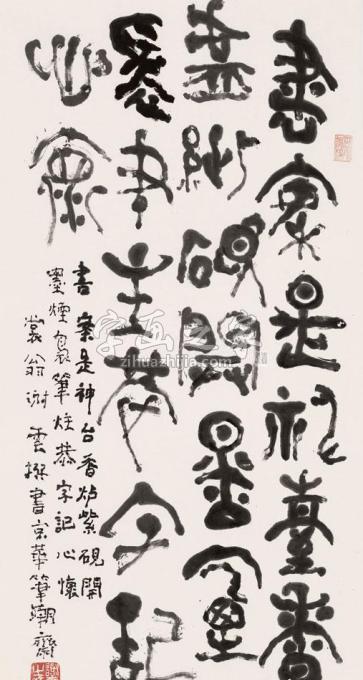 書案是神臺香
爐紫硯開墨煙
裊筆主恭字記
心懷
書案是神台香炉紫硯開
墨煙裊筆炷恭字記心懷
裳翁谢雲撰書京華筆潮齋
字画之家
zihuazhijia.com